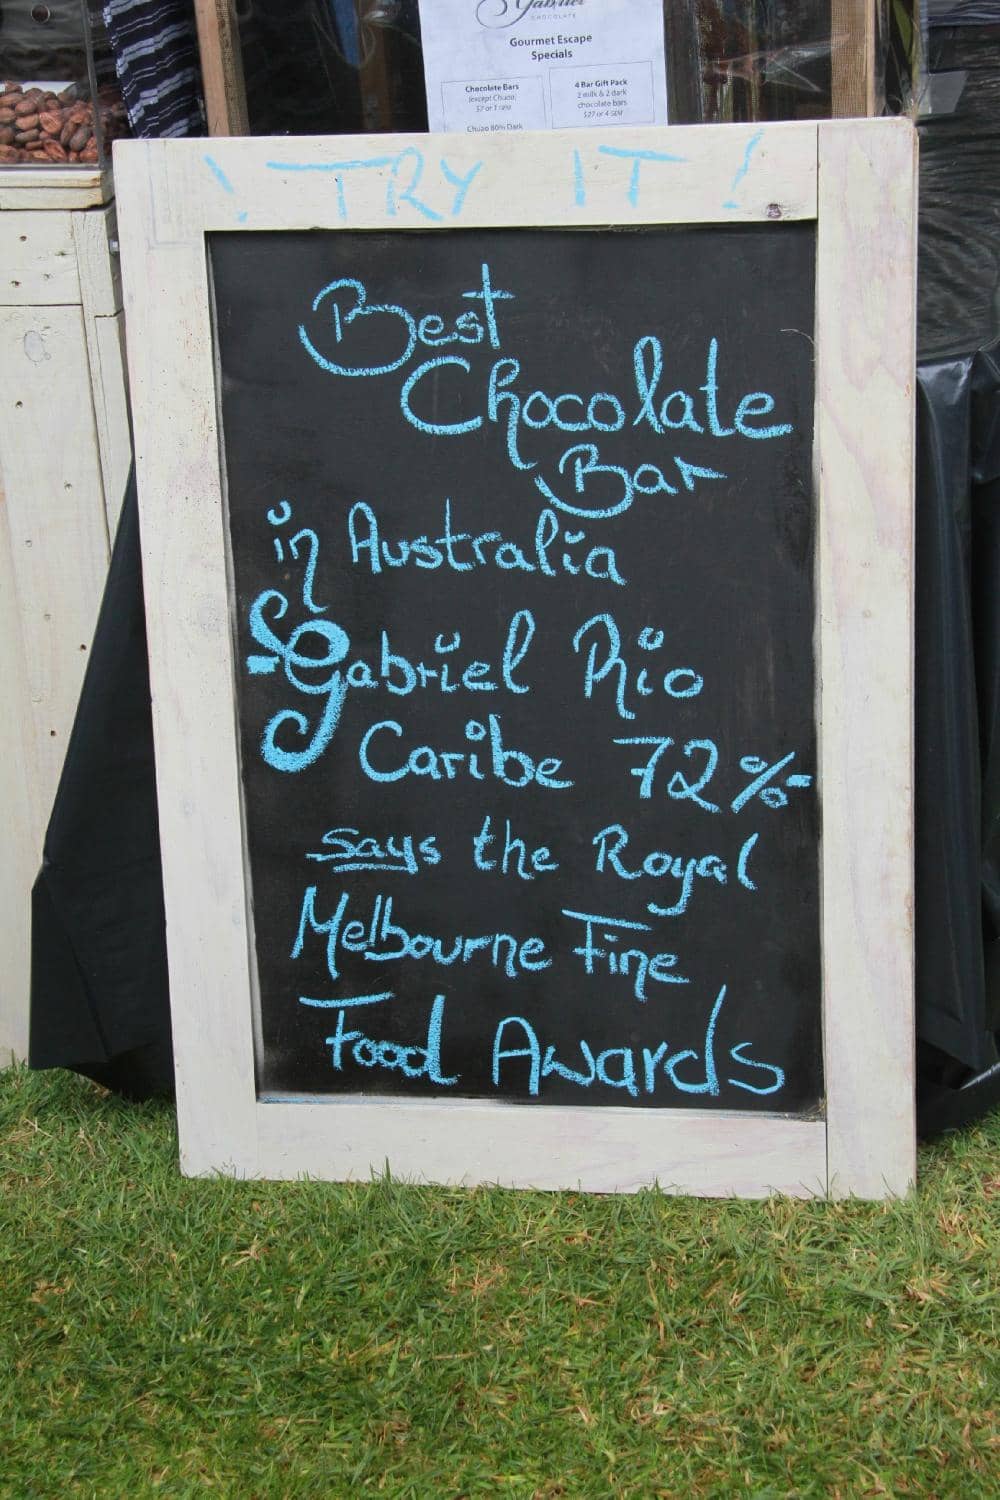 Gabriel
CHOCOLATE
Gourmet Escape
Specials
Chocolate Bars
(except Chuao)
Chuao 80% Dark
4 Bar Gift Pack
2 milk & 2 dark
chocolate bars
! TRY IT !
Best
Chocolate
Bar
in Australia
Gabriel Rio
Caribe 72%
says the Royal
Melbourne Fine
Food Awards